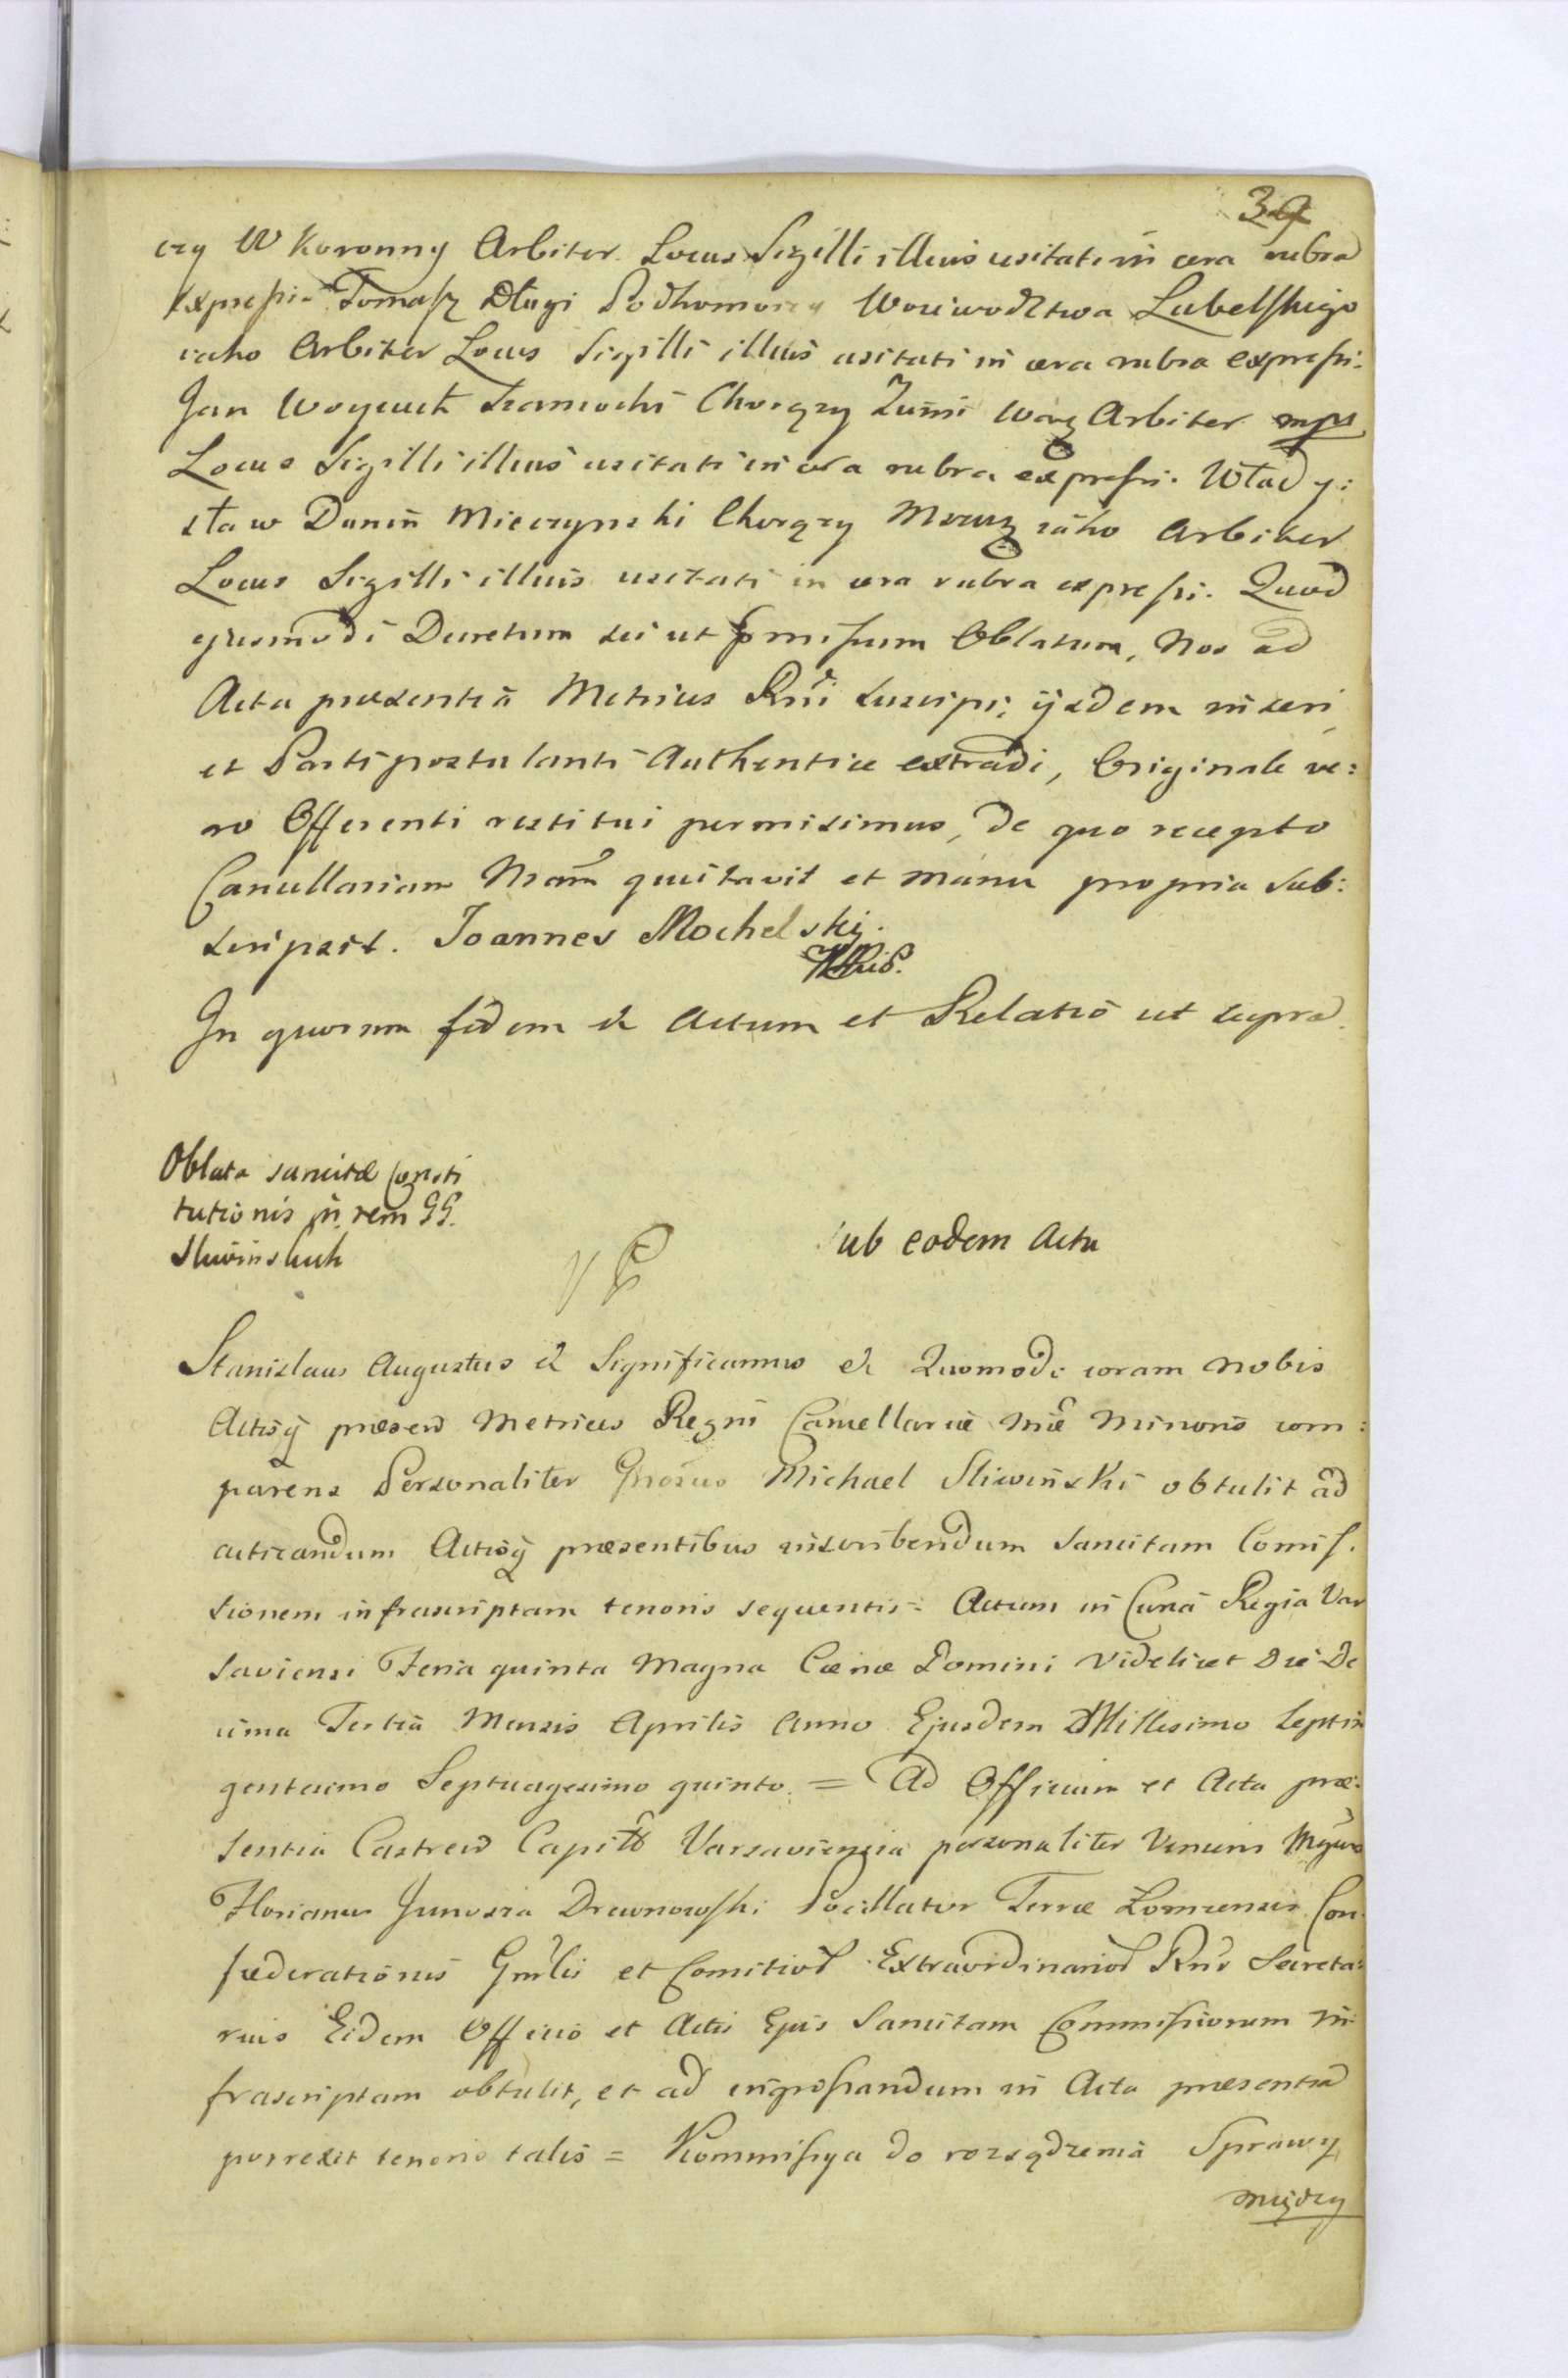 39
czy W Koronny Arbiter. Locus Sigilli illius usitati in cera rubra
expressi. Tomasz Długi Podkomorzy Woiewodztwa Lubelskiego
iako Arbiter Locus Sigilli illius usitati in cera rubra expressi.
Jan Woyciech Szamocki Chorąży Ziemi Warz Arbiter mpr
Locus Sigilli illius usitati in cera rubra expressi. Wład y:
sław Dunin Mieczynski Chorąży iako Arbiter
Locus Sigilli illius usitati in cera rubra expressi. Quod
ejusmodi Decretum sic ut pmissum Oblatum, Nos ad
Acta præsentia Metrices Rni suscipi, ijsdem inseri
et Parti postulanti Authentice extradi, Originale ve:
ro Offerenti restitui permisimus, de quo recepto
Cancellariam Nram quietavit et manu propria sub:
scripsit. Joannes Mochelskij.
In quorum fidem & Actum et Relatio ut supra
Oblata sancitæ Consti
tutionis in rem GG.
Sliwinskich
Sub eodem Actu
Stanislaus Augustus & Significamus & Quomodo coram nobis
Actisq præsen Metrices Regni Cancellariæ Nræ Minoris com:
parens Personaliter Gnosus Michael Sliwinski obtulit ad
acticandum Actisq præsentibus inscribendum Sancitam Comis.
sionem infrascriptam tenoris sequentis: Actum in Curia Regia Var
saviensi Feria quinta Magna Cænæ Domini Videlicet Die De
cima Tertia Mensis Aprilis Anno Ejusdem Millesimo Septin
gentesimo Septuagesimo quinto = Ad Officium et Acta præ:
sentia Castren Capitlia Varsaviensia personaliter Veniens Mgcus
Florianus Junosza Drewnowski Pocillator Terræ Lomzensis Con
fæderationis Gnrlis et Comitior Extraordinarior Rni Secreta:
rius Eidem Officio et Actis Ejus Sancitam Commissionem in:
frascriptam obtulit, et ad ingrossandum in Acta præsentia
porrexit tenoris talis = Kommissya do rozsądzenia Sprawy
między